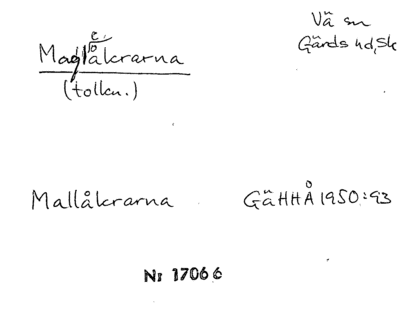 Maglåkrarna
(tolkn.)
Vä sn
Gärds hd, Sk
Mallåkrarna GäHHÅ 1950:93
Nr 17066